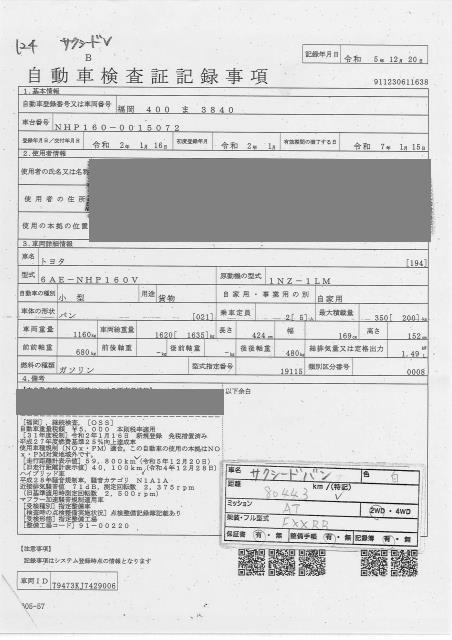 124 サクシードV
B
記録年月日 令和 5年 12月 20日
自動車検査証記録事項
911230611638
1.基本情報
自動車登録番号又は車両番号 福岡 400 ま 3840
車台番号 NHP160-0015072
登録年月日/交付年月日 令和 2年 1月 16日 初度登録年月 令和 2年 1月 有効期間の満了する日 令和 7年 1月 15日
2.使用者情報
使用者の氏名又は名称
使用者の住所
使用の本拠の位置
3.車両詳細情報
車名 トヨタ [194]
型式 6AE-NHP160V 原動機の型式 1NZ-1LM
自動車の種別 小型 用途 貨物 自家用・事業用の別 自家用
車体の形状 バン [021] 乗車定員 2[ 5]人 最大積載量 350[ 200]kg
車両重量 1160kg 車両総重量 1620[ 1635]kg 長さ 424cm 幅 169cm 高さ 152cm
前前軸重 680kg 前後軸重 -kg 後前軸重 -kg 後後軸重 480kg 総排気量又は定格出力 1.49L
燃料の種類 ガソリン 型式指定番号 19115 類別区分番号 0008
4.備考
以下余白
[福岡], 継続検査, [OSS]
自動車重量税額 ¥5,000 本則税率適用
[31年度税制] 令和2年1月16日 新規登録 免税措置済み
平成27年度燃費基準25%向上達成車
使用車種規制(NOx・PM)適合, この自動車の使用の本拠はNOx・PM対策地域外です。
[走行距離計表示値] 59,800km (令和5年12月20日)
[旧走行距離計表示値] 40,100km (令和4年12月28日)
ハイブリッド車
平成28年騒音規制車, 騒音カテゴリ N1A1A
近接排気騒音値 71dB, 測定回転数 2,375rpm
(旧基準適用時測定回転数 2,500rpm)
マフラー加速騒音規制適用車
[受検種別] 指定整備車
[検査時の点検整備実施状況] 点検整備記録簿記載あり
[受検形態] 指定整備工場
[整備工場コード] 91-00220
車名 サクシードバン 色 白
距離 80443 km/(特記)
ミッション AT 2WD・4WD
架装・フル型式 EXXRB
保証書 有・無 整備手帳 有・無 記録簿 有・無
[注意事項]
記録事項はシステム登録時点の情報となります
車両ID T9473KJ7429006